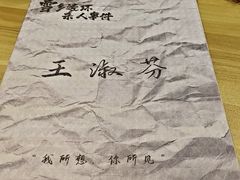 雪乡连环
杀人事件
王淑芬
"我所想，你所见"